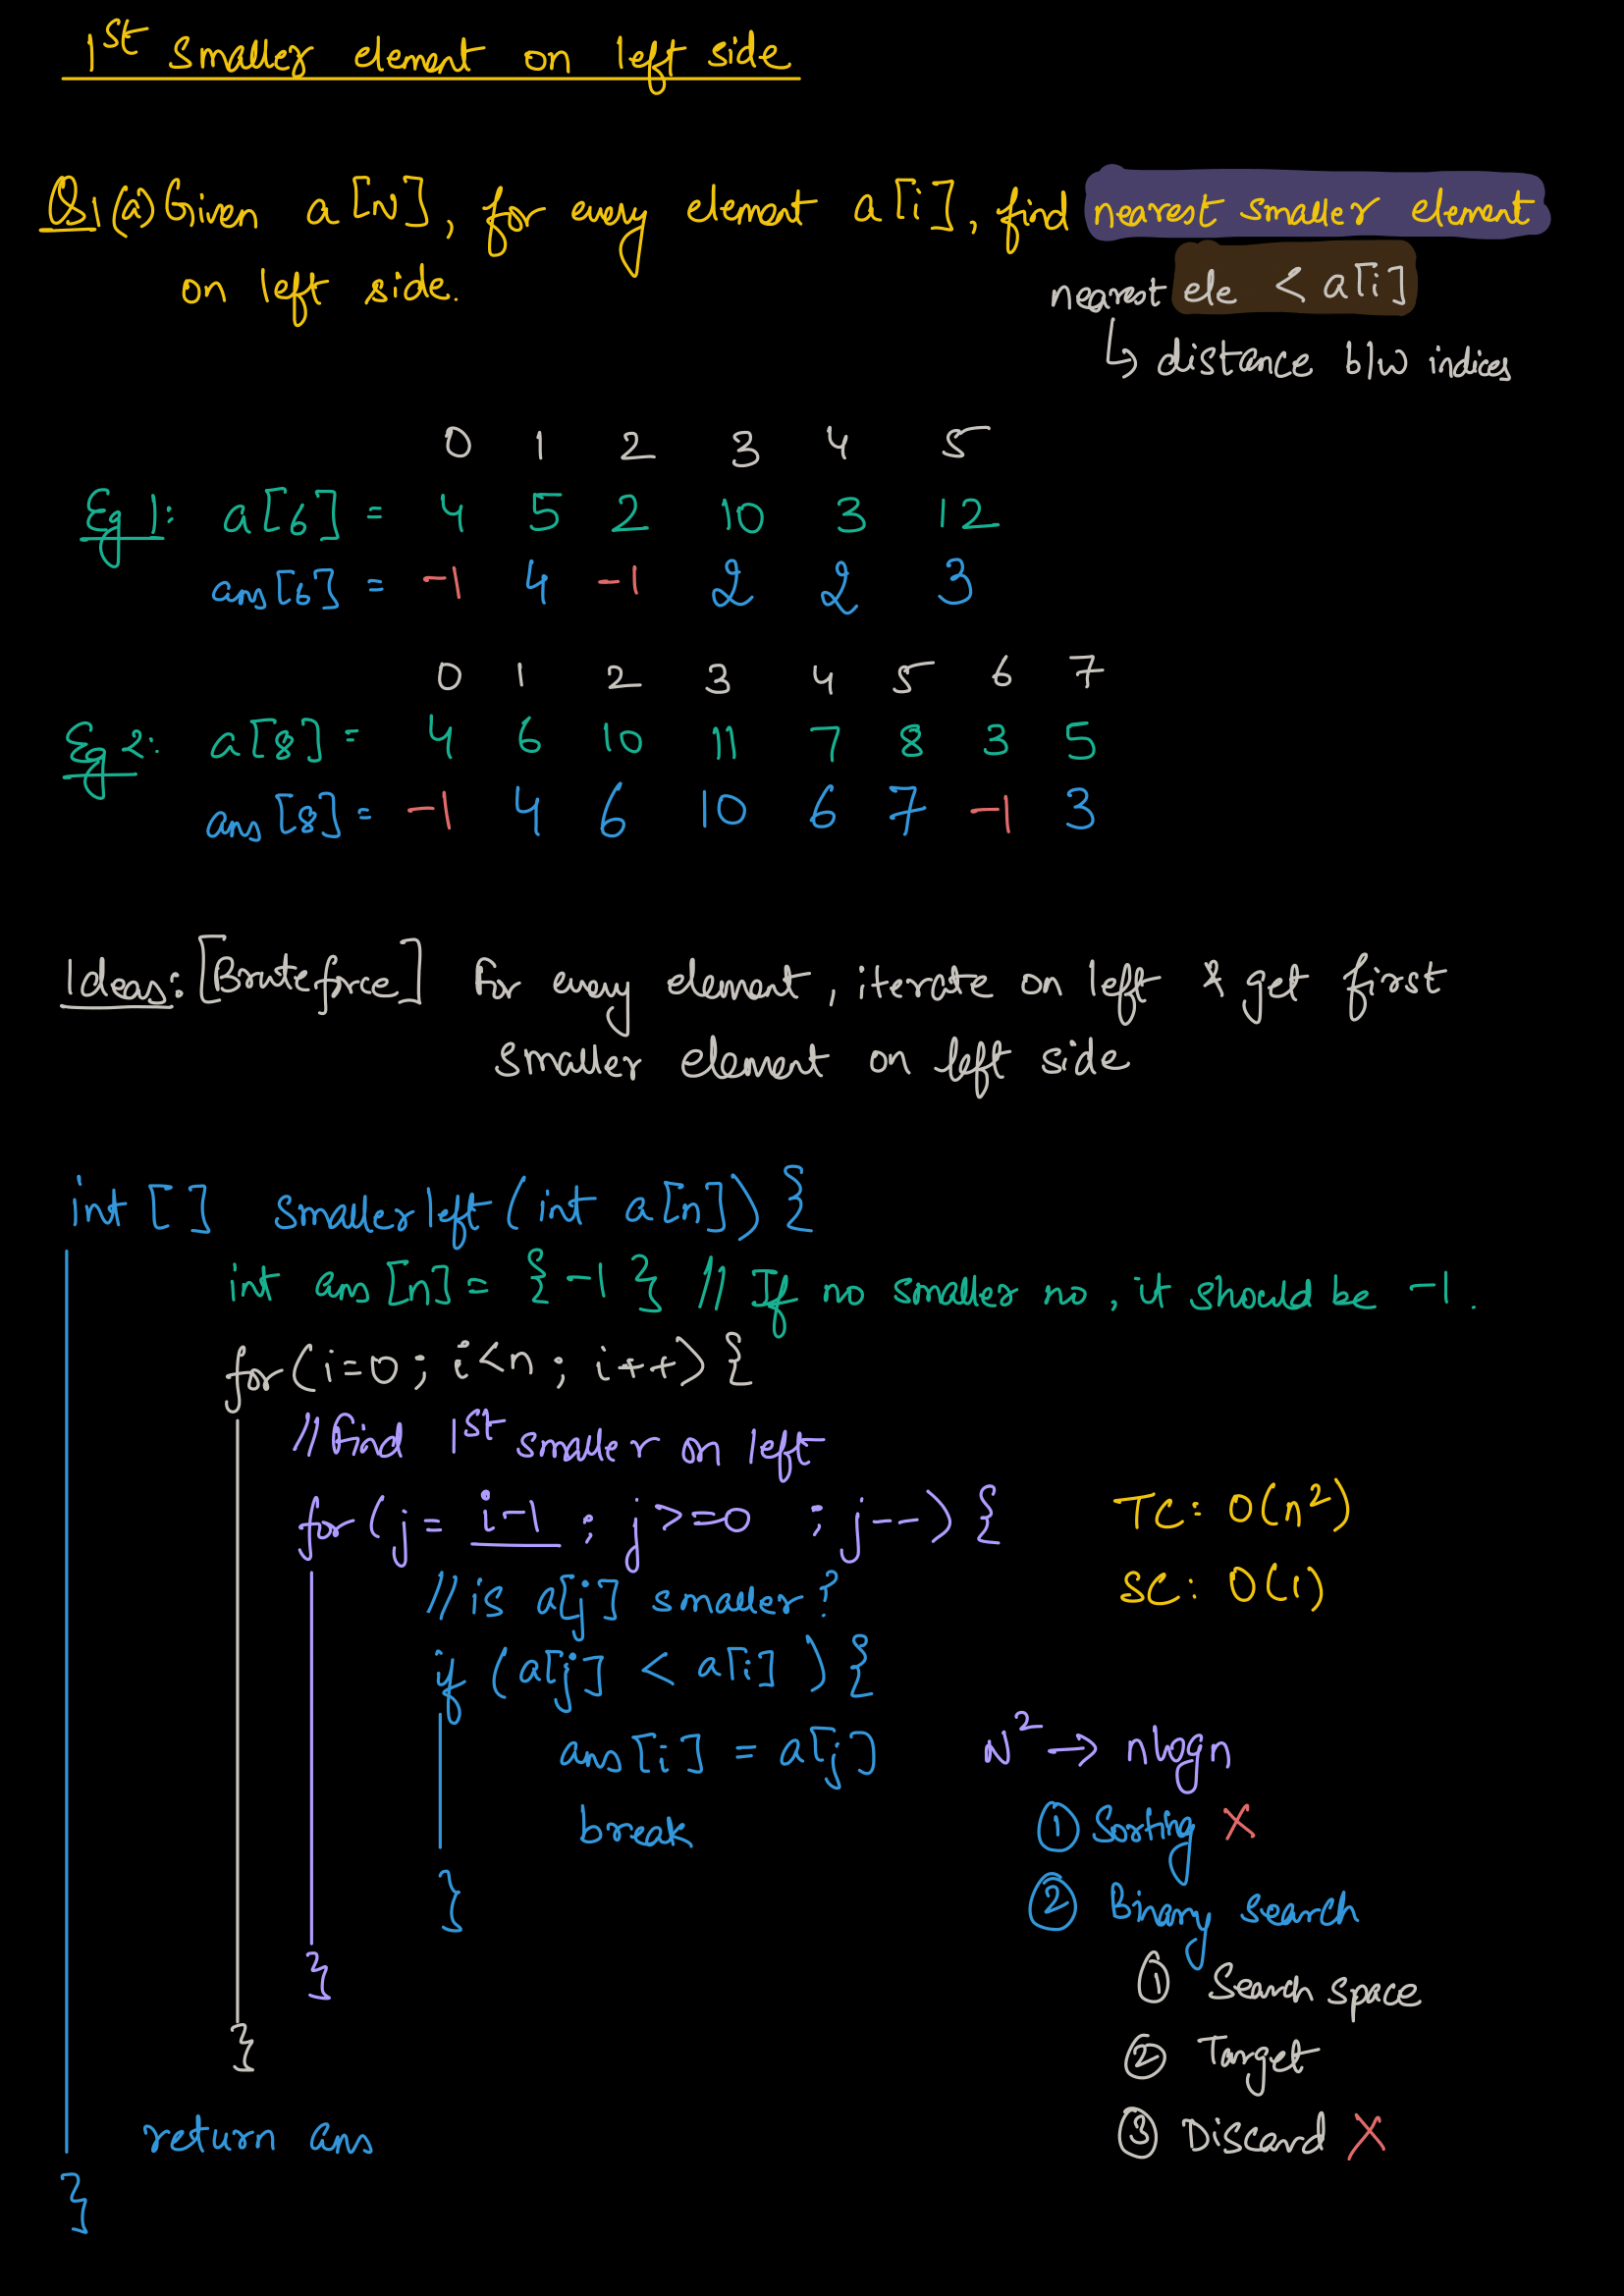 1st smaller element on left side
Q1(a) Given a[N], for every element a[i], find nearest smaller element
on left side.
nearest ele < a[i]
↳ distance b/w indices
0 1 2 3 4 5
Eg 1: a[6] = 4 5 2 10 3 12
ans[6] = -1 4 -1 2 2 3
0 1 2 3 4 5 6 7
Eg 2: a[8] = 4 6 10 11 7 8 3 5
ans[8] = -1 4 6 10 6 7 -1 3
Ideas: [Bruteforce] For every element, iterate on left & get first
smaller element on left side
int [] smallerleft(int a[n]) {
int ans[n] = {-1} // If no smaller no, it should be -1.
for(i=0; i<n; i++) {
// Find 1st smaller on left
for(j= i-1 ; j>=0 ; j--) {
// is a[j] smaller?
if (a[j] < a[i]) {
ans[i] = a[j]
break
}
}
}
return ans
}
TC: O(n²)
SC: O(1)
N² → nlogn
① Sorting ✗
② Binary search
① Search space
② Target
③ Discard ✗